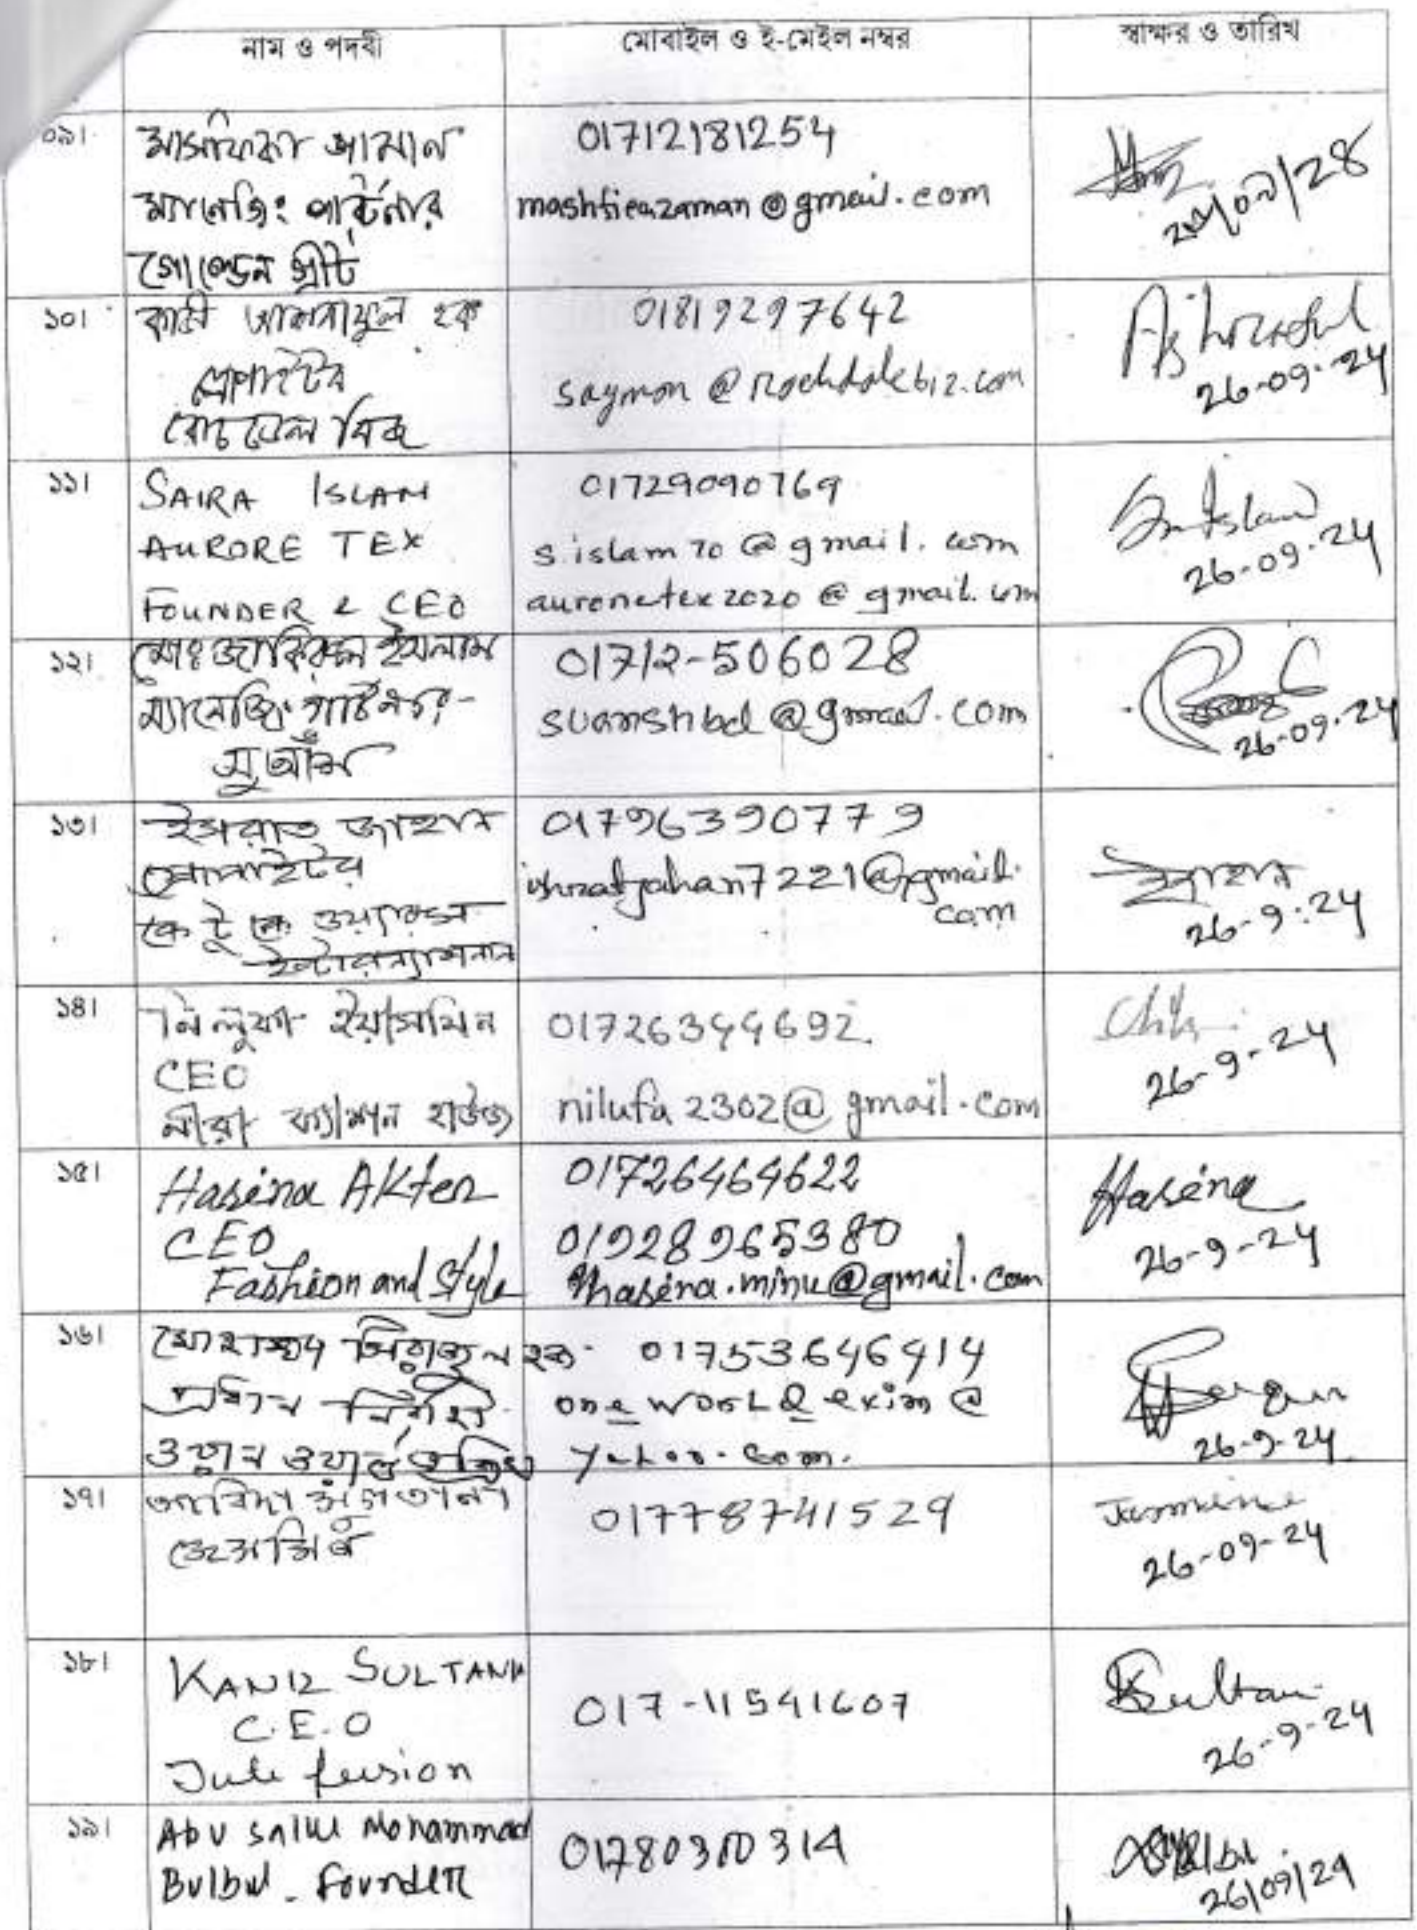 নাম ও পদবী
মোবাইল ও ই-মেইল নম্বর
স্বাক্ষর ও তারিখ
০৯।
মাসফিকা জামান
ম্যানেজিং পার্টনার
গোল্ডেন
01712181254
@gmail.com
১০।
হক
প্রোপাইটর
রোচডেল বিজ
01819297642
saymon @ rochdalebiz.com
26-09-24
১১।
SAIRA ISLAM
AURORE TEX
FOUNDER & CEO
01729090769
s.islam70@gmail.com
auroretex2020@gmail.com
26-09-24
১২।
মোঃ জাকিরুল ইসলাম
ম্যানেজিং পার্টনার-
সুআঁশ
01712-506028
suanshbd@gmail.com
26-09-24
১৩।
ইসরাত জাহান
প্রোপাইটর
কে টু কে
ইন্টারন্যাশনাল
01796390779
ishratjahan7221@gmail.
com
26-9-24
১৪।
নিলুফা ইয়াসমিন
CEO
ফ্যাশন হাউজ
01726344692.
nilufa2302@gmail.com
26-9-24
১৫।
Hasina Akter
CEO
Fashion and Style
01726464622
01928965380
hasina.minu@gmail.com
Hasina
26-9-24
১৬।
মোহাম্মদ সিরাজুল হক
প্রধান নির্বাহী
ওয়ান ওয়ার্ল্ড
01753646414
@
yahoo.com.
26-9-24
১৭।
আবিদা সুলতানা
01778741529
Jasmine
26-09-24
১৮।
KANIZ SULTANA
C.E.O
Jute fusion
017-11541607
KSultana
26-9-24
১৯।
Abu Saleh Mohammad
Bulbul. Founder
26/09/24